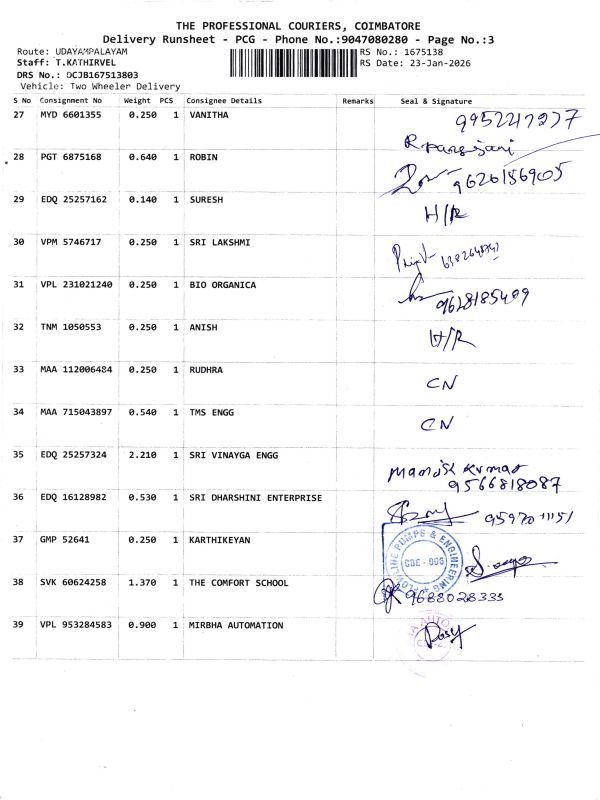 THE PROFESSIONAL COURIERS, COIMBATORE
Delivery Runsheet - PCG - Phone No.:9047080280 - Page No.:3
Route: UDAYAMPALAYAM RS No.: 1675138
Staff: T.KATHIRVEL RS Date: 23-Jan-2026
DRS No.: DCJB167513803
Vehicle: Two Wheeler Delivery
S No Consignment No Weight PCS Consignee Details Remarks Seal & Signature
27 MYD 6601355 0.250 1 VANITHA
28 PGT 6875168 0.640 1 ROBIN
29 EDQ 25257162 0.140 1 SURESH H/R
30 VPM 5746717 0.250 1 SRI LAKSHMI
31 VPL 231021240 0.250 1 BIO ORGANICA
32 TNM 1050553 0.250 1 ANISH H/R
33 MAA 112006484 0.250 1 RUDHRA CN
34 MAA 715043897 0.540 1 TMS ENGG CN
35 EDQ 25257324 2.210 1 SRI VINAYGA ENGG Manish Kumar
9566818087
36 EDQ 16128982 0.530 1 SRI DHARSHINI ENTERPRISE
37 GMP 52641 0.250 1 KARTHIKEYAN
FLOWLINE PUMPS & ENGINEERING
CBE - 006
38 SVK 60624258 1.370 1 THE COMFORT SCHOOL 9688028333
39 VPL 953284583 0.900 1 MIRBHA AUTOMATION